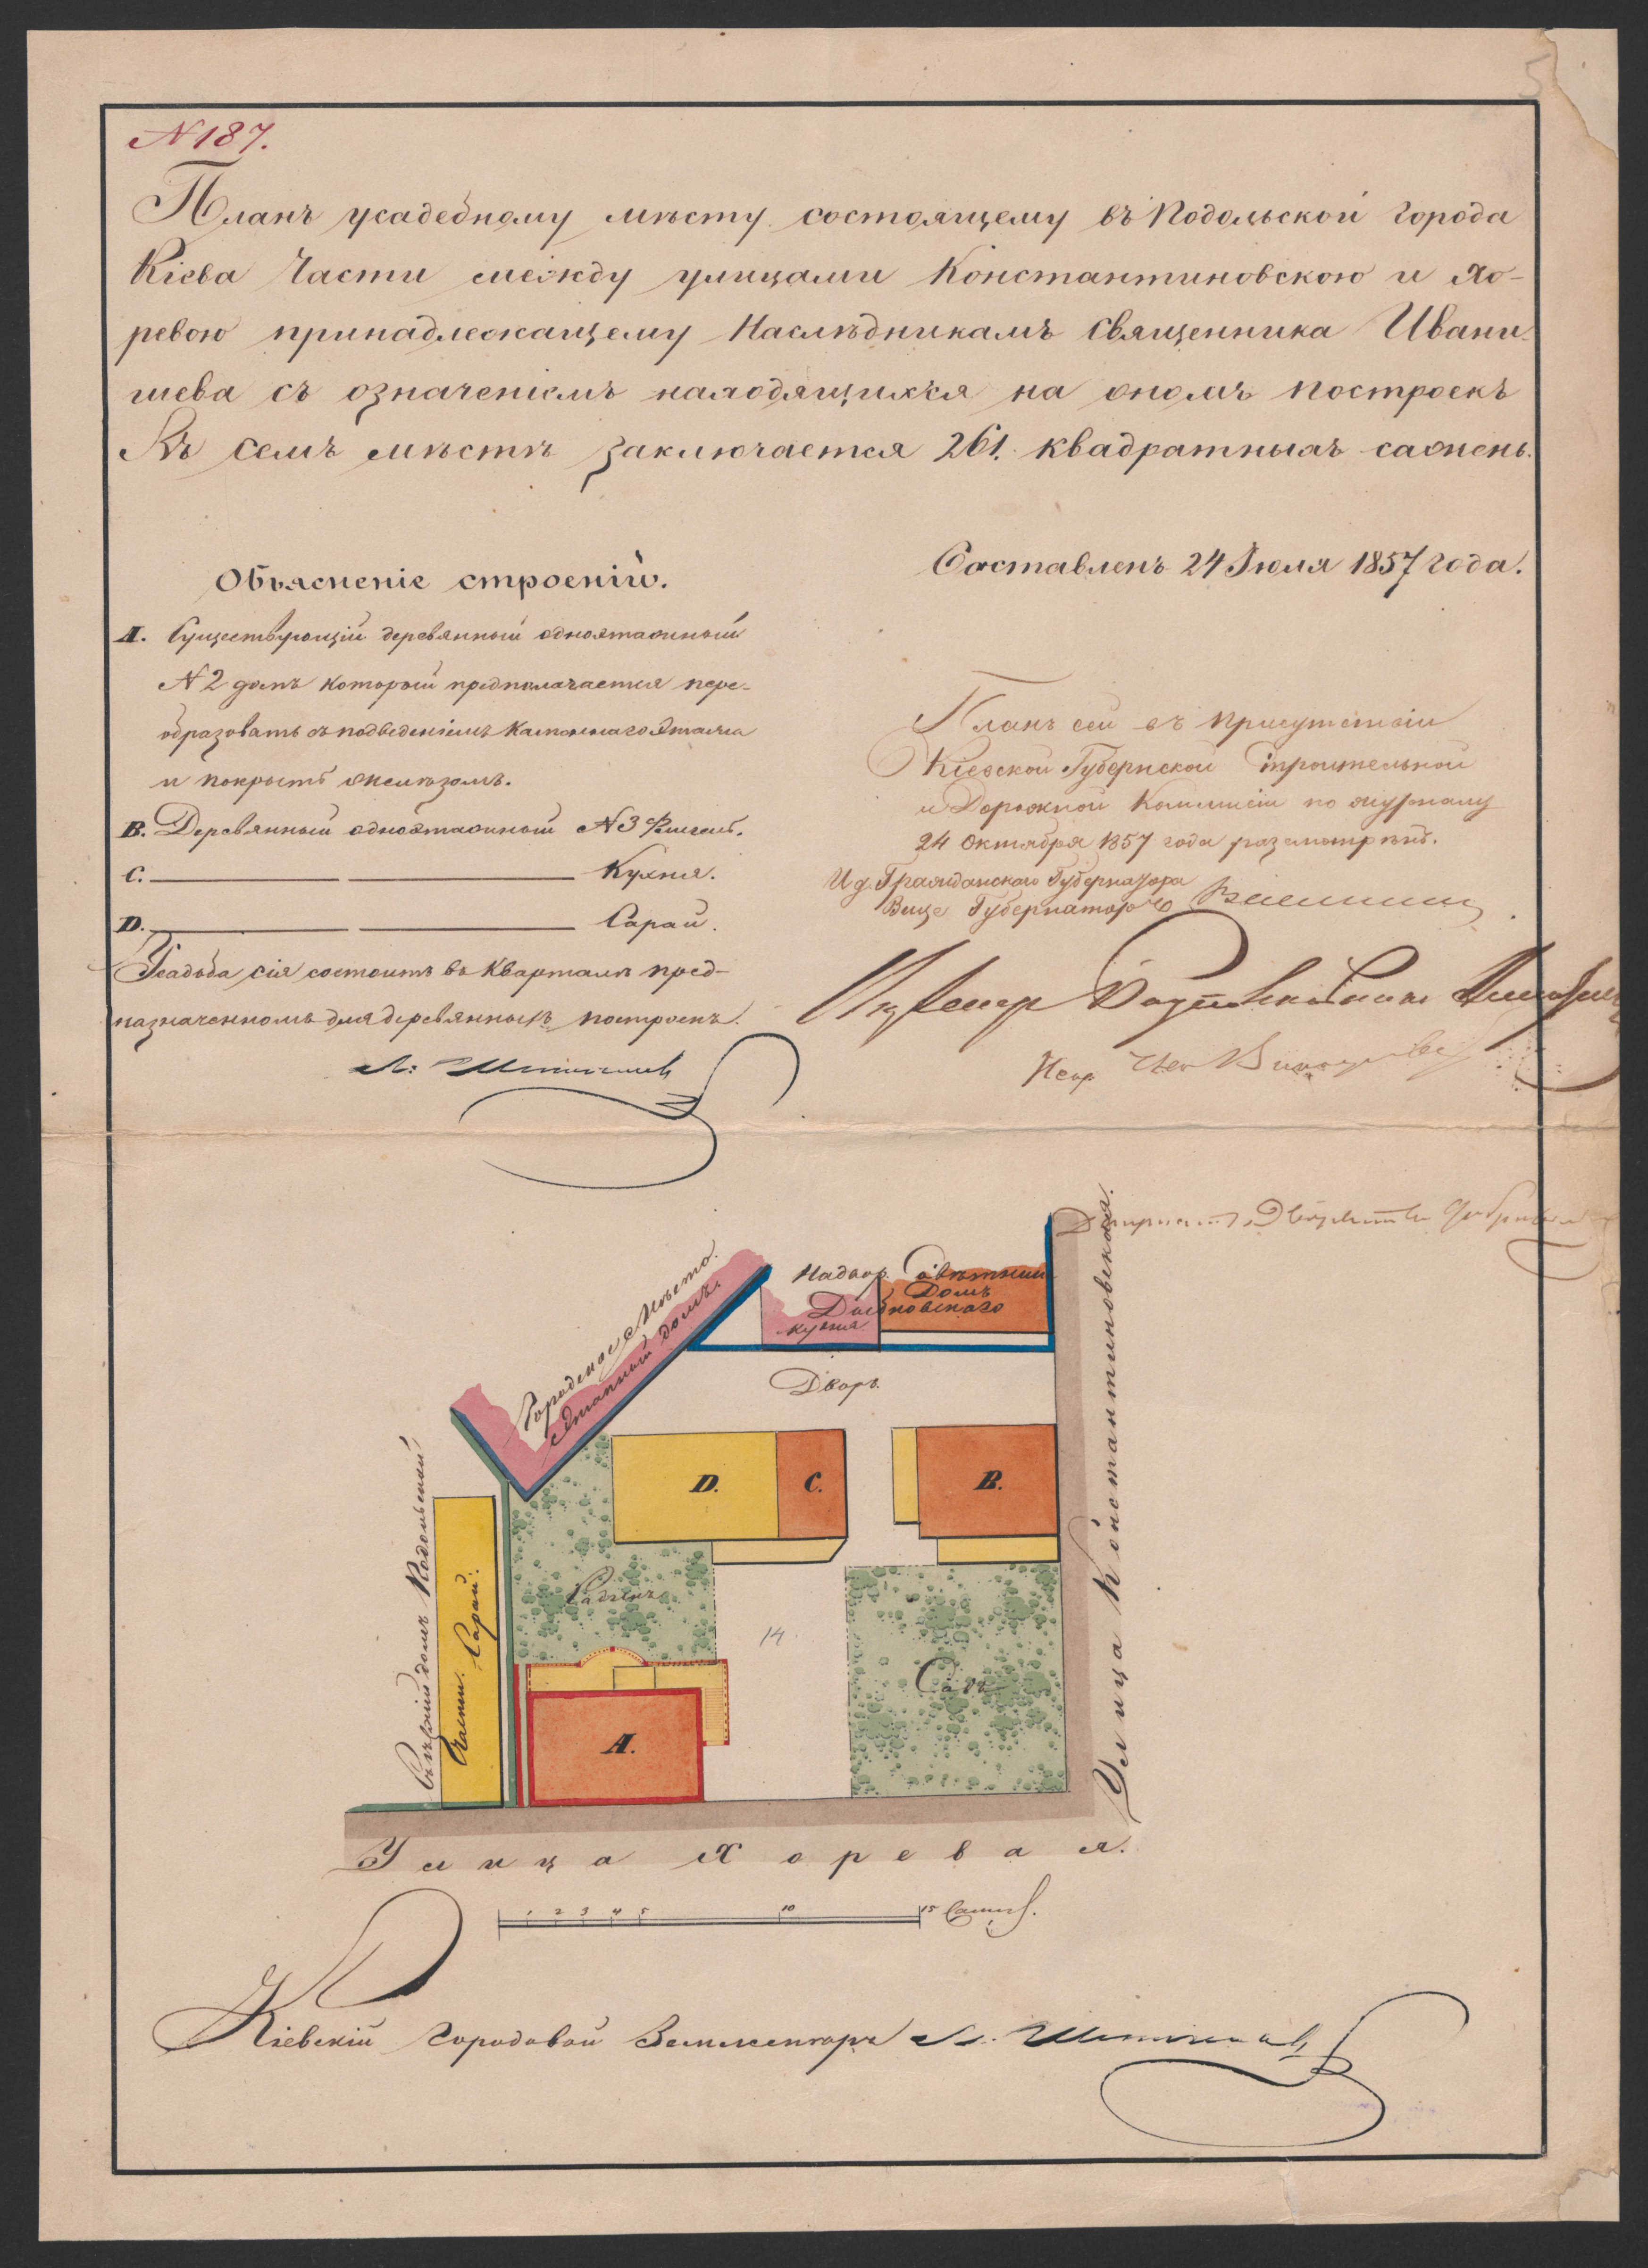 N 187.
Планъ усадебному мѣсту состоящему въ Подольской города
Кіева Части между улицами Константиновскою и Хо-
ревою принадлежащему Наслѣдникамъ Священника Ивани-
шева съ означеніемъ находящихся на ономъ построекъ
Въ семъ мѣстѣ заключается 261. квадратныхъ сажень.
Составленъ 24 Іюля 1857 года.
Объясненіе строеній.
А. Существующій деревянный одноэтажный
N 2 домъ который предполагается пере-
образовать съ подведеніемъ каменнаго этажа
и покрыть желѣзомъ.
В. Деревянный одноэтажный N 3 Флигель.
С. Кухня.
D. Сарай.
Усадьба сія состоитъ въ Кварталѣ пред-
назначенномъ для деревянныхъ построекъ.
Планъ сей въ присутствіи
Кіевской Губернской Строительной
и Дорожной Коммисіи по журналу
24 Октября 1857 года разсмотрѣнъ.
И. д. Гражданскаго Губернатора
Вице Губернаторъ
Городское Мѣсто.
Этажный домъ.
Надвор. Совѣтника
Домъ
кухня
Дворъ.
D.
C.
B.
Садикъ
14
Садъ
A.
домъ Подольской
Части. Сарай.
Улица Константиновская.
Улица Хоревая.
1 2 3 4 5 10 15 Саженъ.
Кіевскій Городовой Землемѣръ